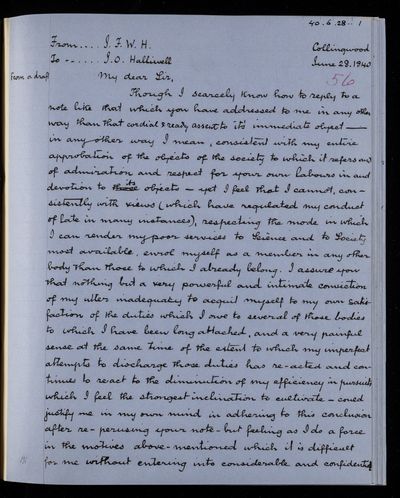 40.6.28.. 1
From.... J. F. W. H.
Collingwood
To ..... J. O. Halliwell
June 28. 1840
from a draft
My dear Sir,
56
Though I scarcely know how to reply to a
note like that which you have addressed to me in any other
way than that cordial & ready assent to its immediate object —
in any other way I mean, consistent with my entire
approbation of the objects of the society to which it refers and
of admiration and respect for your own labours in and
devotion to its objects — yet I feel that I cannot, con-
sistently with views (which have regulated my conduct
of late in many instances), respecting the mode in which
I can render my poor services to Science and to Society
most available, enrol myself as a member in any other
body than those to which I already belong. I assure you
that nothing but a very powerful and intimate conviction
of my utter inadequacy to acquit myself to my own satis-
faction of the duties which I owe to several of those bodies
to which I have been long attached, and a very painful
sense at the same time of the extent to which my imperfect
attempts to discharge those duties has re-acted and con-
tinues to react to the diminution of my efficiency in pursuits
which I feel the strongest inclination to cultivate — could
justify me in my own mind in adhering to this conclusion
after re-perusing your note — but feeling as I do a force
in the motives above-mentioned which it is difficult
for me without entering into considerable and confidential